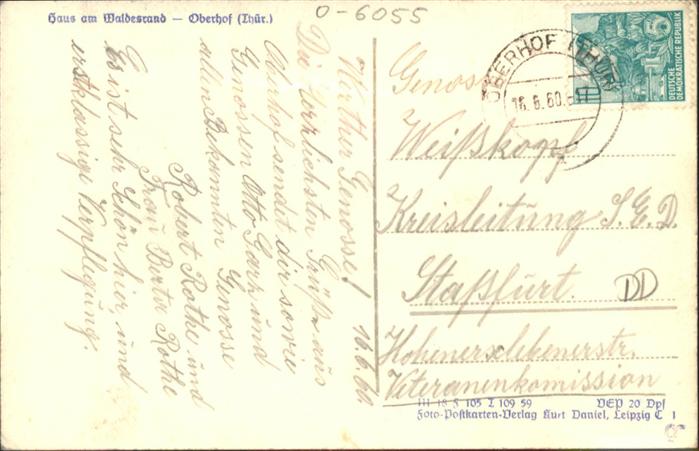 Haus am Waldesrand – Oberhof (Thür.)
O-6055
Werther Genosse! 16.6.60
Die herzlichsten Grüße aus
Oberhof sendet dir sowie
Genossen Otto und
allen Bekannten Genosse
Robert Rothe und
Frau Berta Rothe
Es ist sehr Schön hier, und
erstklassige Verpflegung.
OBERHOF (THÜR)
16.6.60.
5
DEUTSCHE
DEMOKRATISCHE REPUBLIK
Genosse
Weißkopf
Kreisleitung S.E.D.
Staßfurt.
DD
Hohenerxlebenerstr.
Veteranenkomission
III 18 F 105 Z 109 59 VEP 20 Dpf
Foto-Postkarten-Verlag Kurt Daniel, Leipzig C 1